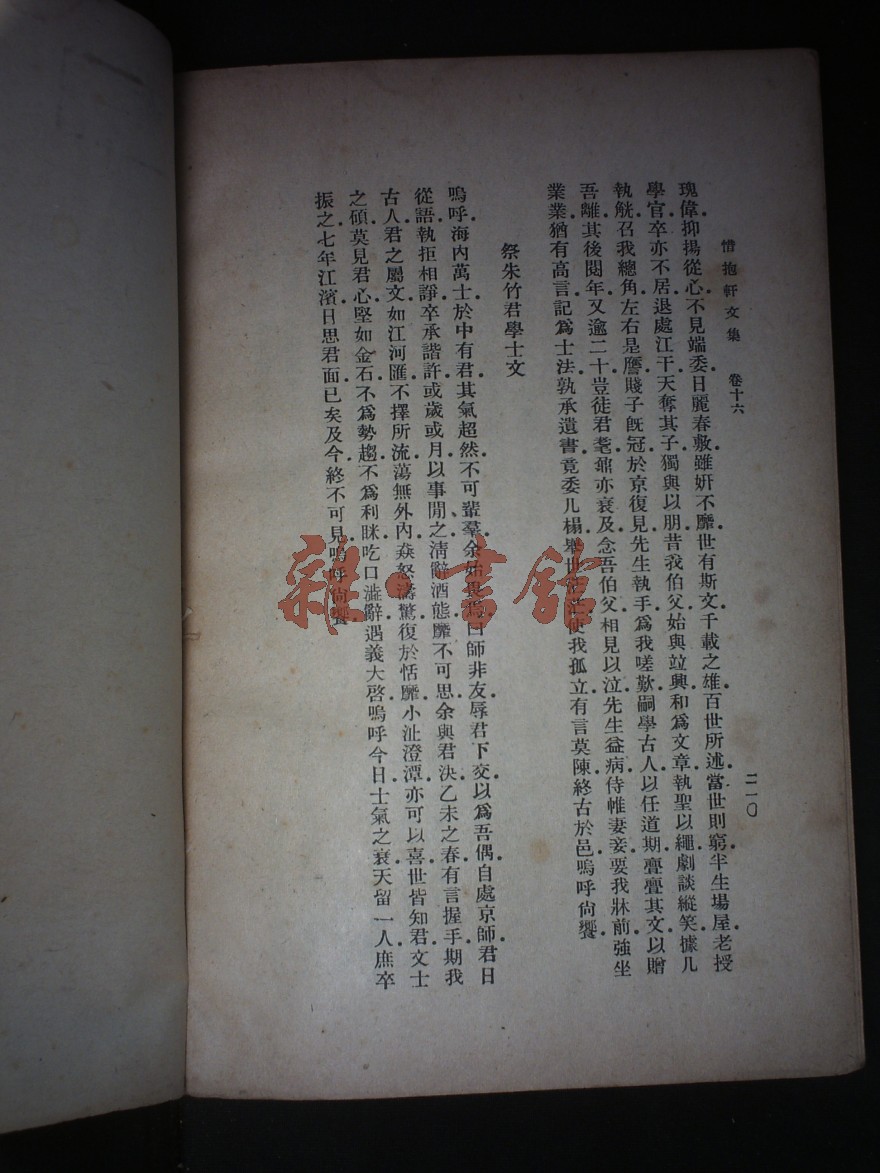 惜抱軒文集　卷十六
二一〇
瑰偉抑揚從心不見端委日麗春敷雖妍不靡世有斯文千載之雄百世所述當世則窮半生場屋老授
學官卒亦不居退處江干天奪其子獨與以朋昔我伯父始與竝興和為文章執聖以繩劇談縱笑據几
執觥召我總角左右是譍賤子既冠於京復見先生執手為我嗟歎嗣學古人以任道期亹亹其文以贈
吾離其後閱年又逾二十豈徒君耄鼐亦衰及念吾伯父相見以泣先生益病侍帷妻妾要我牀前強坐
業業猶有高言記為士法孰承遺書竟委几榻舉世茫茫使我孤立有言莫陳終古於邑嗚呼尙饗
祭朱竹君學士文
嗚呼海內萬士於中有君其氣超然不可輩羣余始畏焉曰師非友辱君下交以為吾偶自處京師君日
從語執拒相諍卒承諧許或歲或月以事閒之淸辭酒態靡不可思余與君決乙未之春有言握手期我
古人君之屬文如江河匯不擇所流蕩無外內猋怒濤驚復於恬靡小沚澄潭亦可以喜世皆知君文士
之碩莫見君心堅如金石不為勢趨不為利眯吃口澁辭遇義大啓嗚呼今日士氣之衰天留一人庶卒
振之七年江濱日思君面已矣及今終不可見嗚呼尙饗
雜·書館